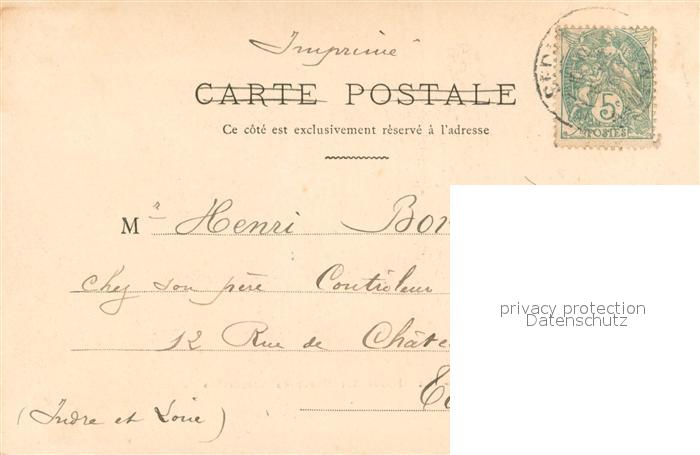 Imprimé
CARTE POSTALE
Ce côté est exclusivement réservé à l'adresse
5c
POSTES
Mr Henri
chez son père Contrôleur
12 Rue de
(Indre et Loire)
privacy protection
Datenschutz